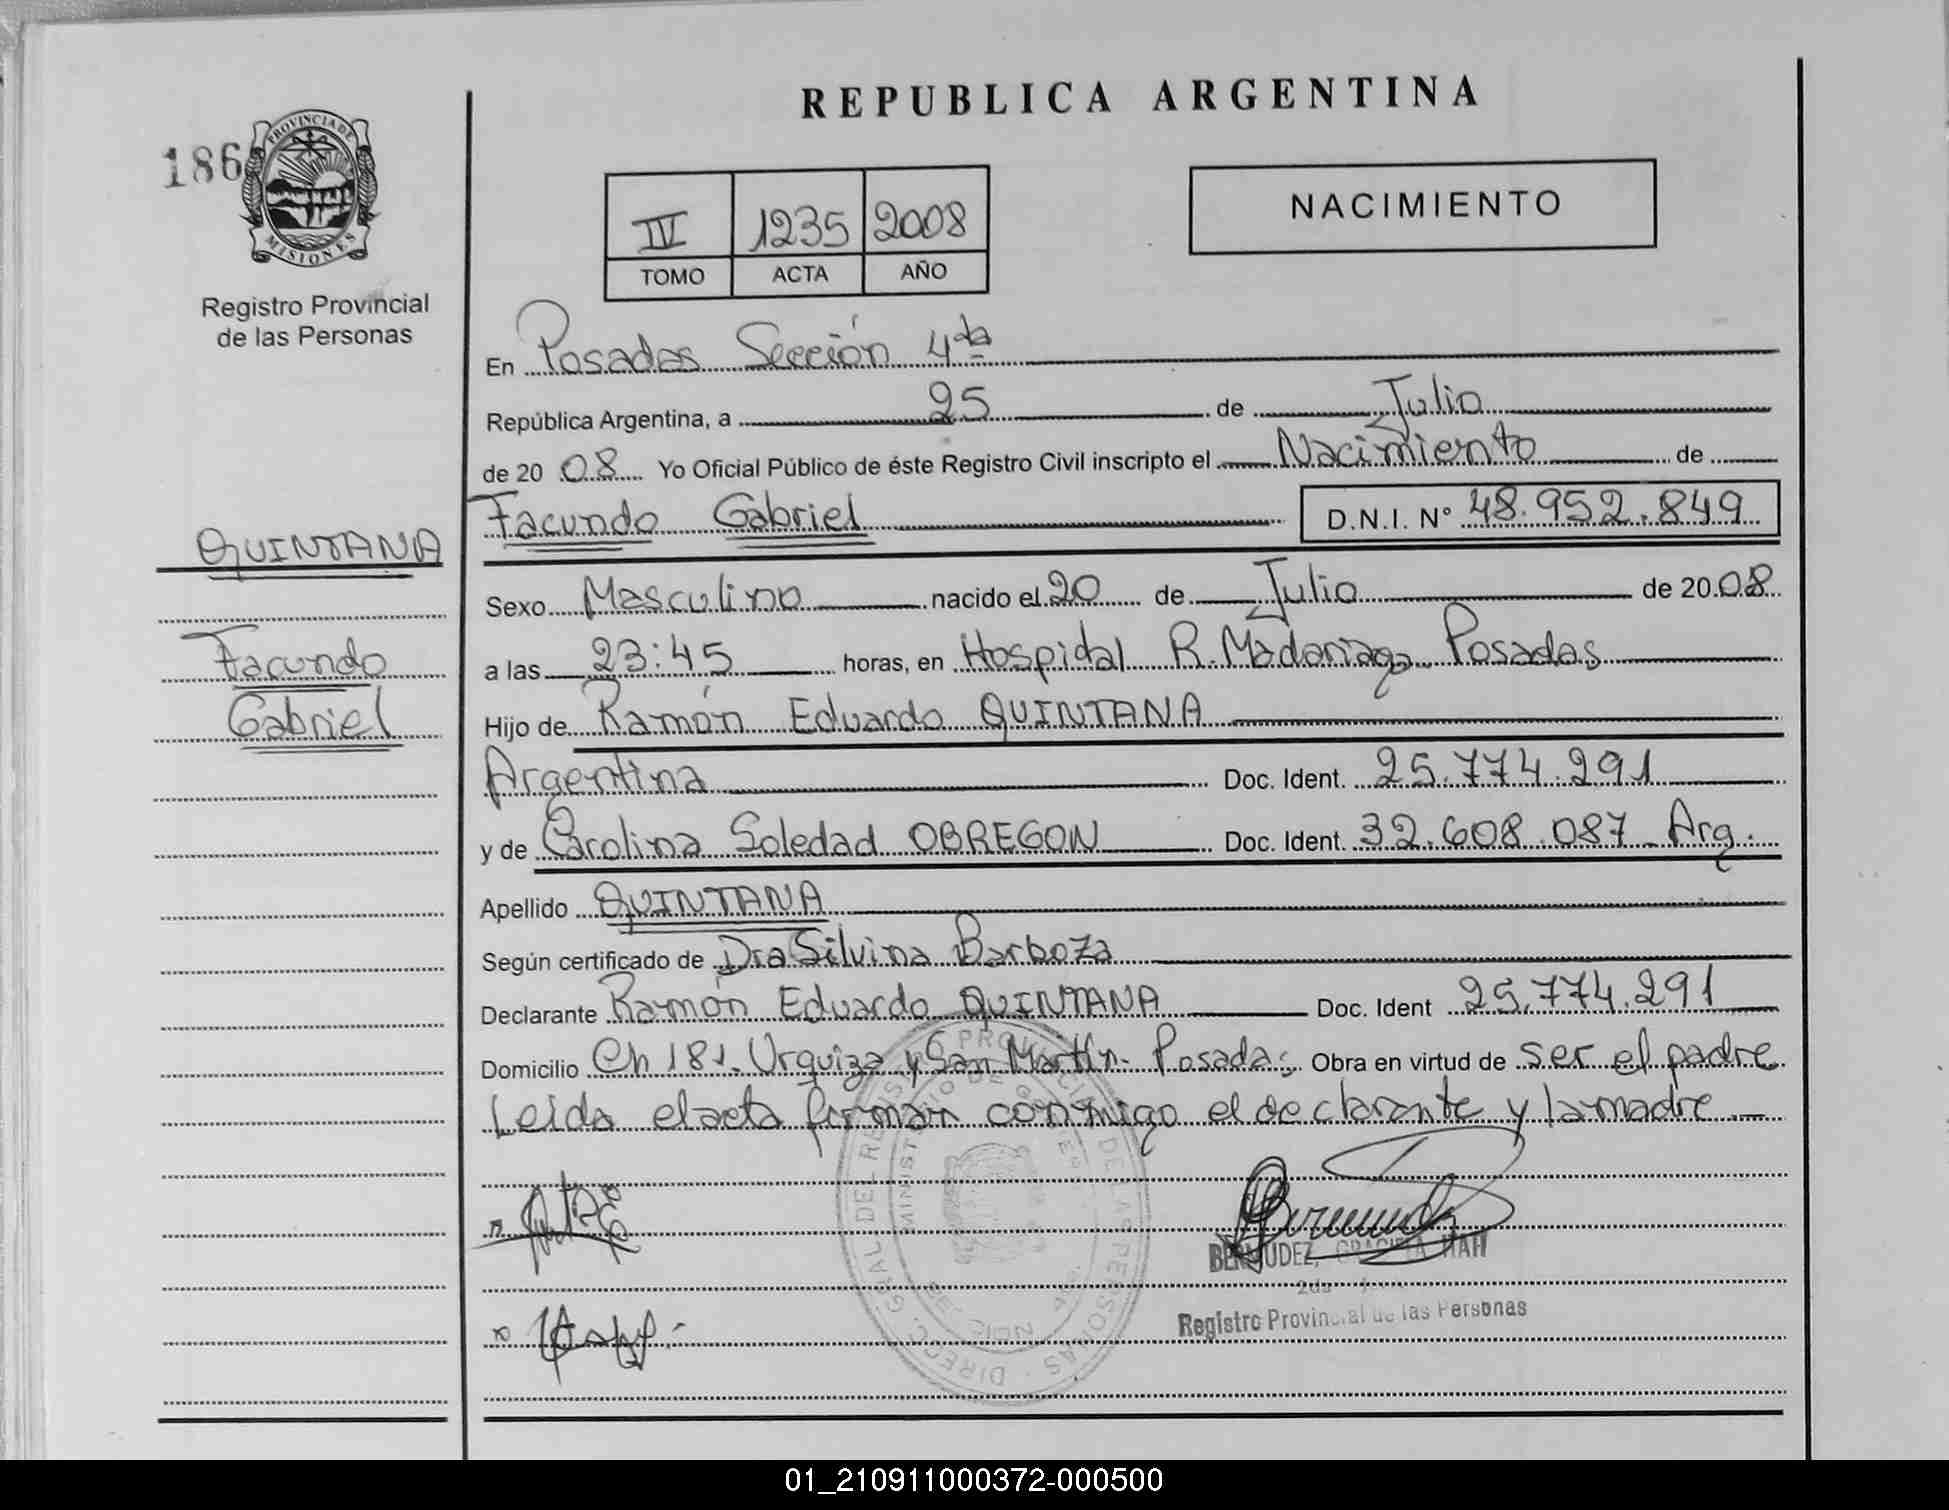 REPUBLICA ARGENTINA
186
PROVINCIA DE
MISIONES
Registro Provincial
de las Personas
IV 1235 2008
TOMO ACTA AÑO
NACIMIENTO
En Posadas Sección 4da
República Argentina, a 25 de Julio
de 20 08 Yo Oficial Público de éste Registro Civil inscripto el Nacimiento de
Facundo Gabriel D.N.I. Nº 48.952.849
QUINTANA
Facundo
Gabriel
Sexo Masculino nacido el 20 de Julio de 20 08
a las 23:45 horas, en Hospidal R. Madariaga Posadas
Hijo de Ramón Eduardo QUINTANA
Argentina Doc. Ident. 25.774.291
y de Carolina Soledad OBREGON Doc. Ident. 32.608.087 Arg.
Apellido QUINTANA
Según certificado de Dra Silvina Barboza
Declarante Ramón Eduardo QUINTANA Doc. Ident 25.774.291
Domicilio Ch 181. Urquiza y San Martín - Posadas Obra en virtud de ser el padre
Leida el acta firman conmigo el declarante y la madre
BERMUDEZ,
Registro Provincial de las Personas
01_210911000372-000500